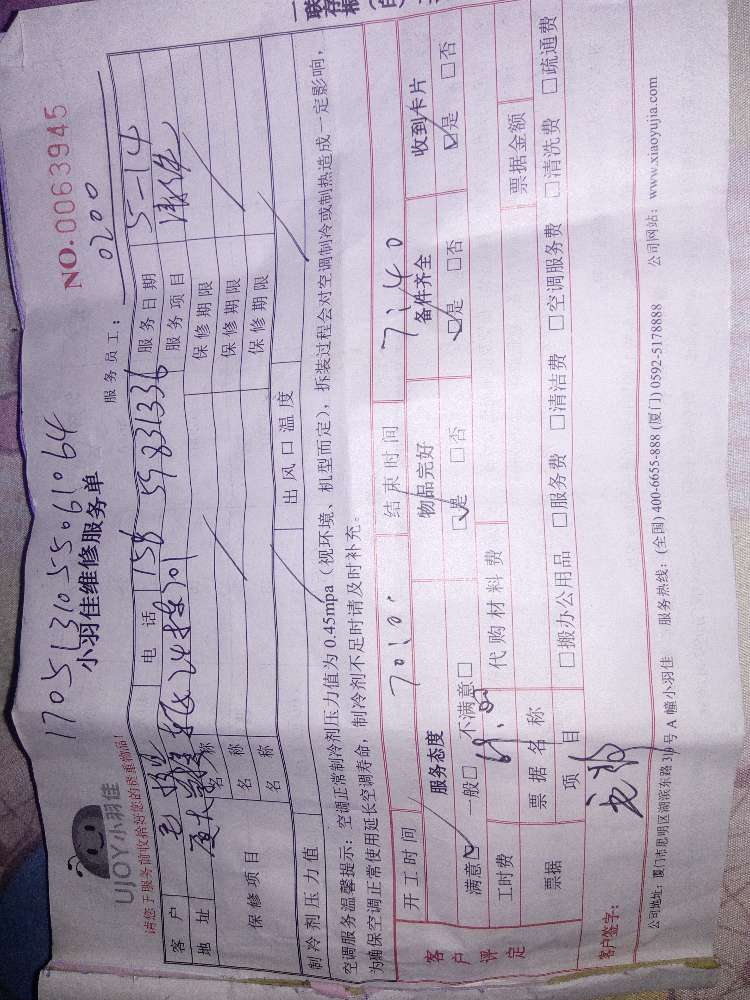 一联
存根
17051310550 61064
NO.0063945
UJOY小羽佳
小羽佳维修服务单
服务员工： 0200
请您于服务前收拾好您的贵重物品！
客户 电话 158 59831336 服务日期 5-14
地址 服务项目
保修项目 名称 保修期限
名称 保修期限
名称 保修期限
制冷剂压力值 出风口温度
空调服务温馨提示：空调正常制冷剂压力值为0.45mpa（视环境、机型而定），拆装过程会对空调制冷或制热造成一定影响，
为确保空调正常使用延长空调寿命，制冷剂不足时请及时补充。
客户评定
开工时间 7:0: 结束时间 7:40
服务态度 物品完好 备件齐全 收到卡片
满意☑ 一般□ 不满意□ ☑是 □否 ☑是 □否 ☑是 □否
工时费 代购材料费 票据金额
票据 票据名称
项目 □搬办公用品 □服务费 □清洁费 □空调服务费 □清洗费 □疏通费
客户签字：
公司地址：厦门市思明区湖滨东路319号A幢小羽佳 服务热线：(全国) 400-6655-888 (厦门) 0592-5178888 公司网站：www.xiaoyujia.com